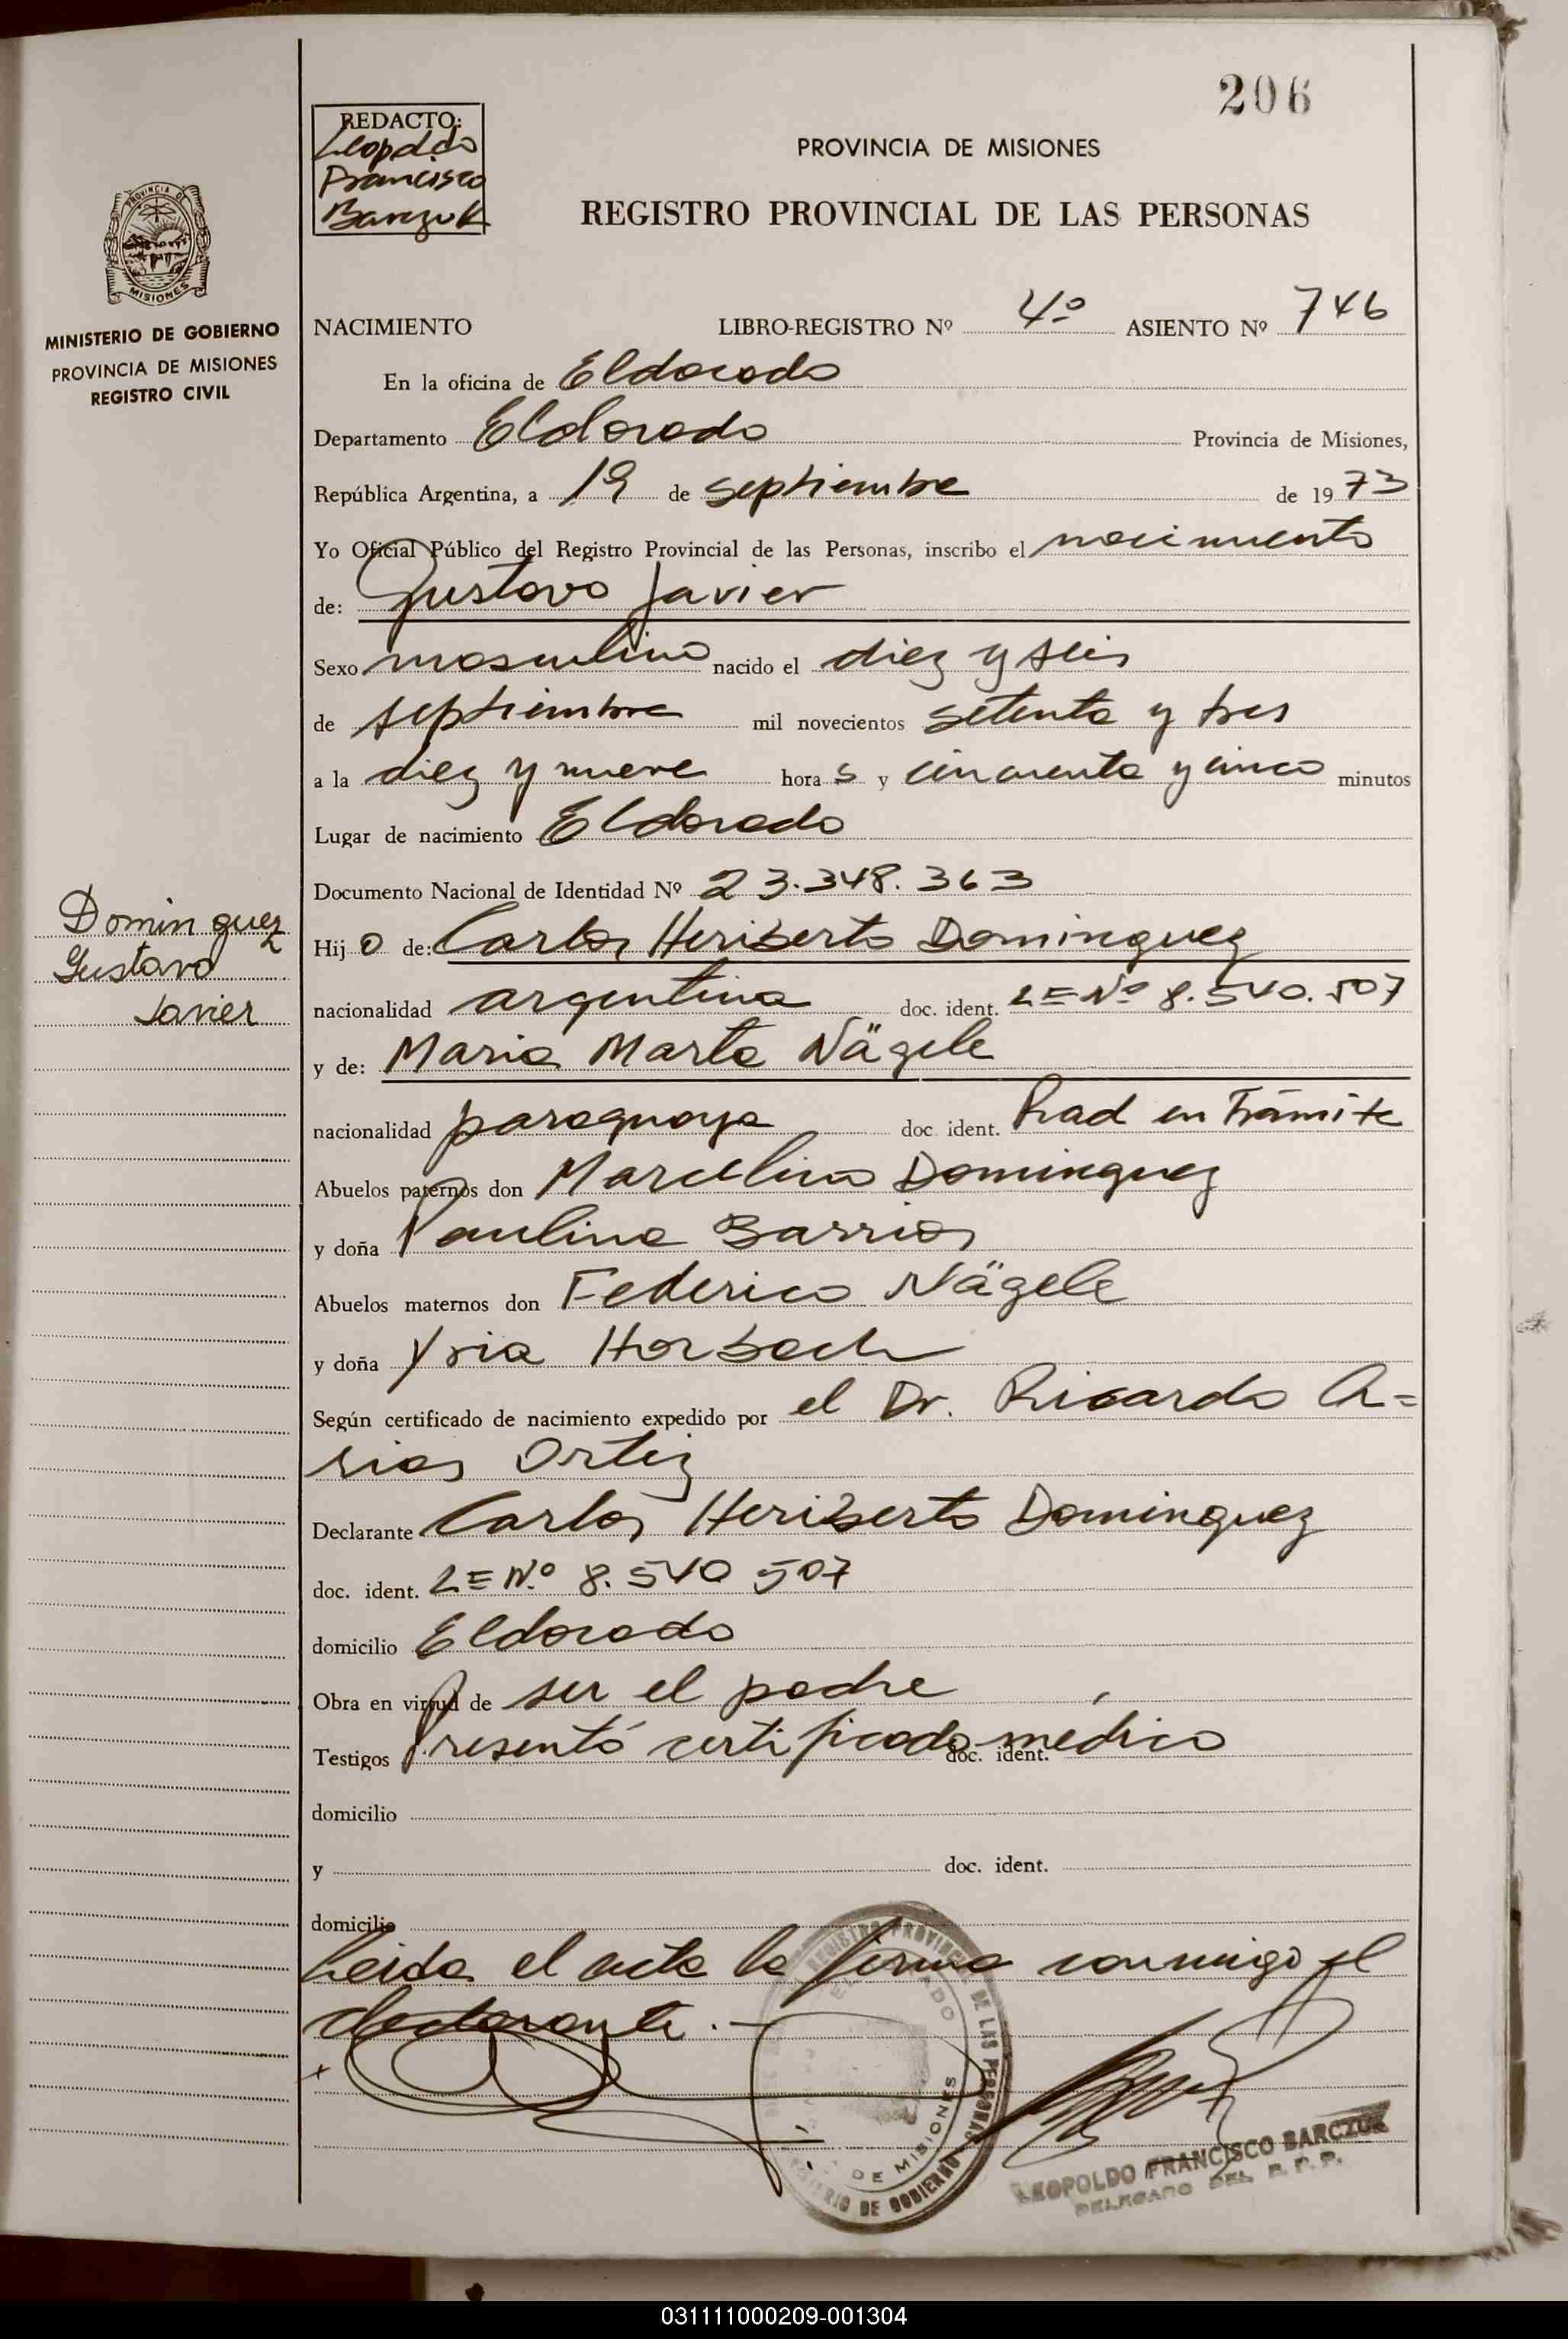 206
REDACTO:
Leopoldo
Francisco
Barczuk
PROVINCIA DE MISIONES
REGISTRO PROVINCIAL DE LAS PERSONAS
PROVINCIA DE
MISIONES
MINISTERIO DE GOBIERNO
PROVINCIA DE MISIONES
REGISTRO CIVIL
NACIMIENTO LIBRO-REGISTRO Nº 4º ASIENTO Nº 746
En la oficina de Eldorado
Departamento Eldorado Provincia de Misiones,
República Argentina, a 19 de septiembre de 1973
Yo Oficial Público del Registro Provincial de las Personas, inscribo el nacimiento
de: Gustavo Javier
Sexo masculino nacido el diez y seis
de septiembre mil novecientos setenta y tres
a la diez y nueve hora s y cincuenta y cinco minutos
Lugar de nacimiento Eldorado
Documento Nacional de Identidad Nº 23.348.363
Dominguez
Gustavo
Javier
Hijo de: Carlos Heriberto Dominguez
nacionalidad argentina doc. ident. LE Nº 8.540.507
y de: Maria Marta Nägele
nacionalidad paraguaya doc. ident. Rad en Trámite
Abuelos paternos don Marcelino Dominguez
y doña Paulina Barrios
Abuelos maternos don Federico Nägele
y doña Yria Horbach
Según certificado de nacimiento expedido por el Dr. Ricardo A=
rias Ortiz
Declarante Carlos Heriberto Dominguez
doc. ident. LE Nº 8.540 507
domicilio Eldorado
Obra en virtud de ser el padre
Testigos Presentó certificado médico doc. ident.
domicilio
y doc. ident.
domicilio
Leida el acta la firma conmigo el
declarante. -
LEOPOLDO FRANCISCO BARCZUK
DELEGADO DEL R. P. P.
031111000209-001304